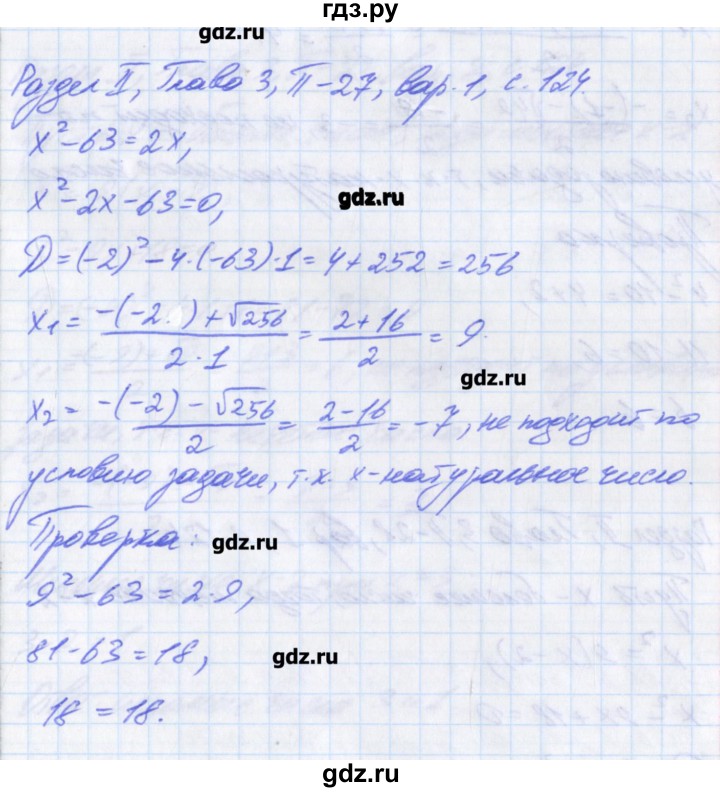 гдз.ру
gdz.ru
Раздел II, Глава 3, П-27, вар. 1, с. 124.
x² - 63 = 2x,
x² - 2x - 63 = 0,
gdz.ru
D = (-2)² - 4·(-63)·1 = 4 + 252 = 256
x₁ = (-(-2) + √256) / (2·1) = (2 + 16) / 2 = 9.
gdz.ru
x₂ = (-(-2) - √256) / 2 = (2 - 16) / 2 = -7, не подходит по
условию задачи, т.к. x - натуральное число.
Проверка:
gdz.ru
9² - 63 = 2·9,
81 - 63 = 18,
gdz.ru
18 = 18.
gdz.ru